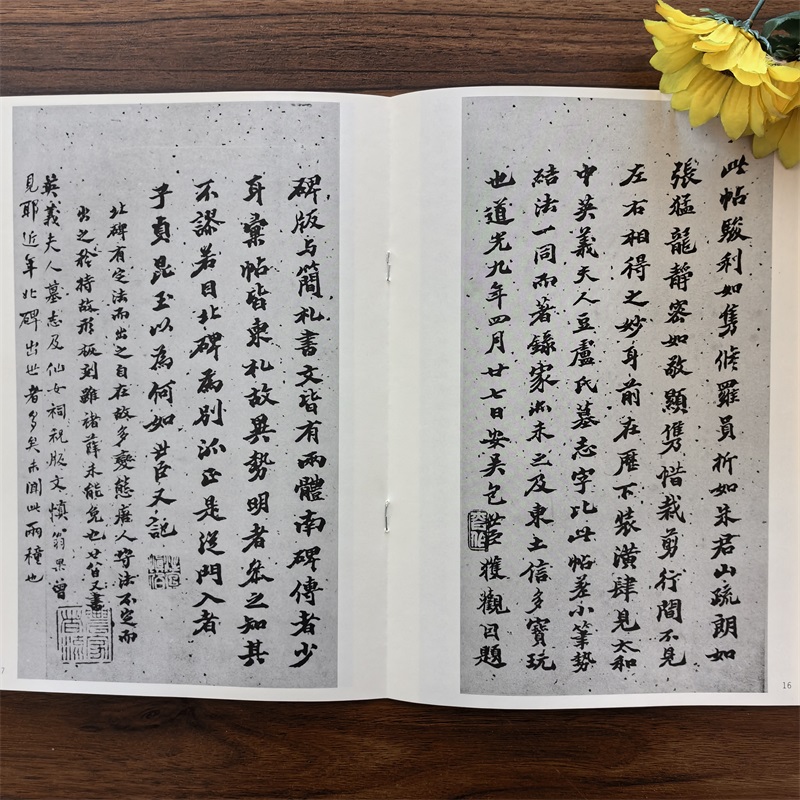 此帖駿利如雋脩羅員折如朱君山疏朗如
張猛龍靜密如敬顯雋惜裁剪行間不見
左右相得之妙耳前在歷下裝潢肆見太和
中英義夫人豆盧氏墓志字比此帖差小筆勢
結法一同而著錄家未之及東土信多寶玩
也道光九年四月廿七日安吳包世臣獲觀因題
16
碑版与簡札書文皆有兩體南碑傳者少
耳彙帖皆柬札故異勢明者參之知其
不謬若目北碑為別派正是從門入者
子貞昆玉以為何如世臣又記
北碑有定法而出之自在故多變態唐人法不定而
出之矜持故形板刻雖褚薛未能免也又書
英義夫人墓志及仙女祠祝版文慎翁果曾
見耶近年北碑出世者多矣未聞此兩種也
7